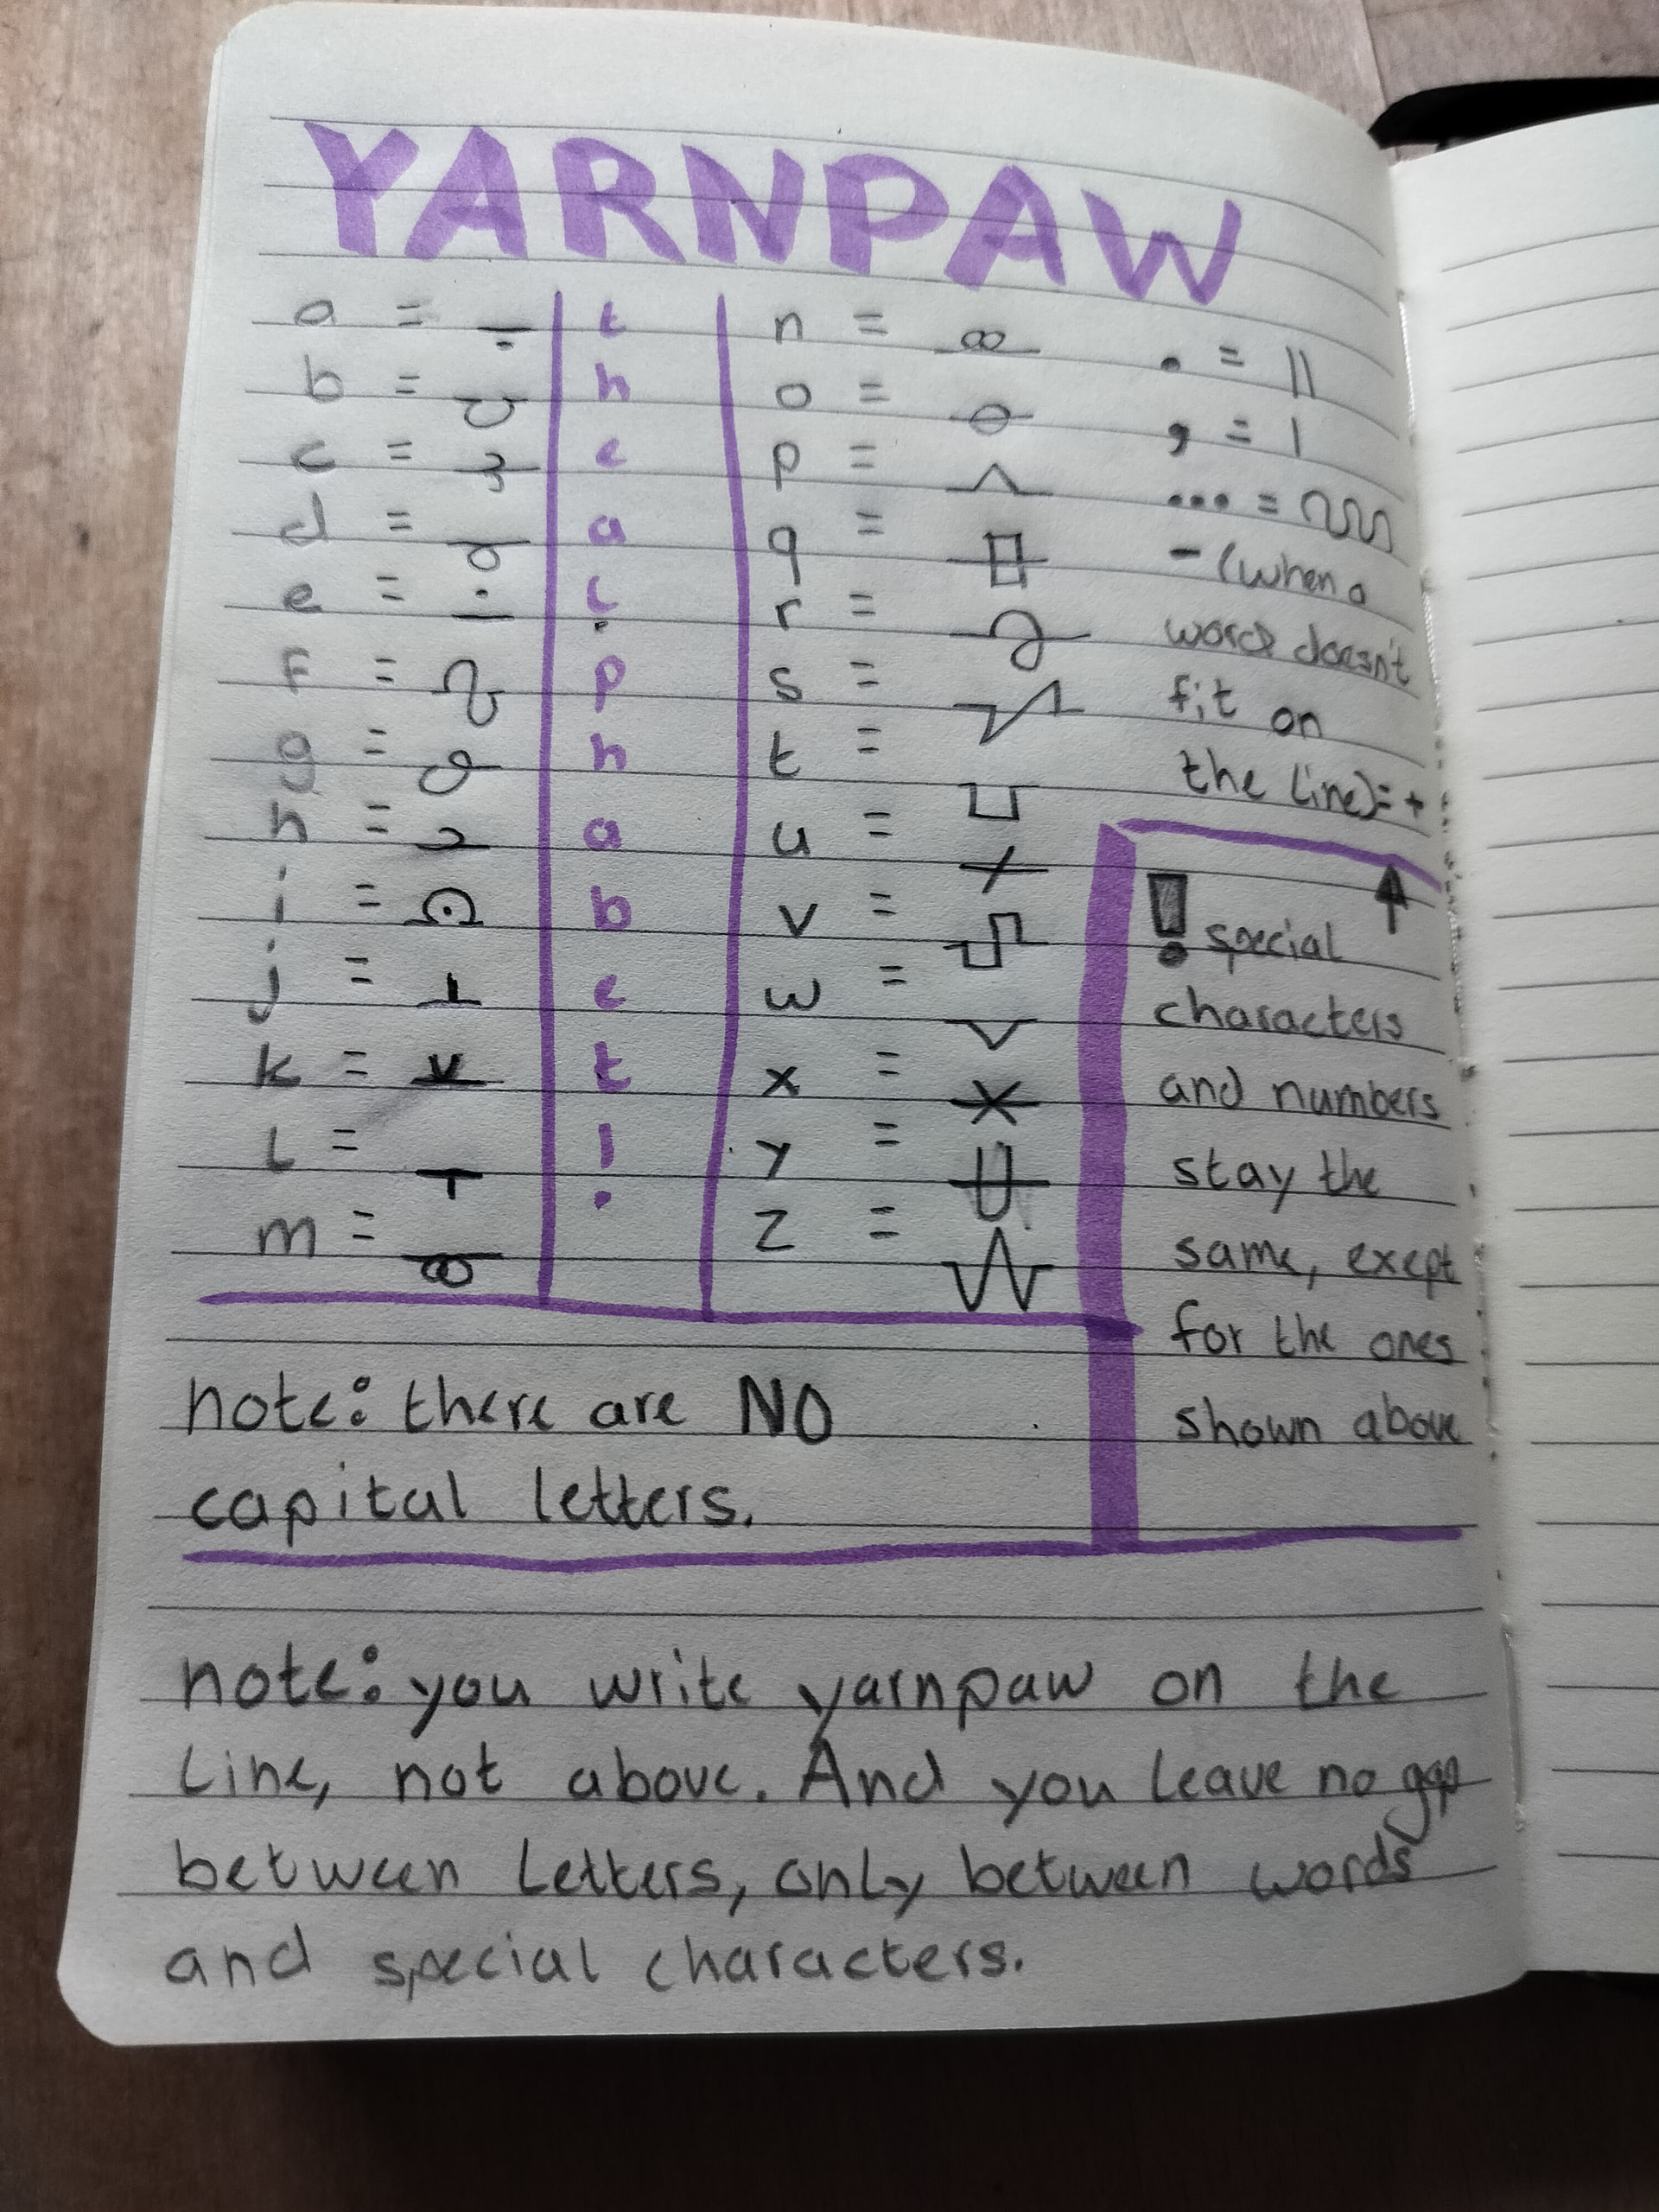 YARNPAW
a =
b =
c =
d =
e =
f =
g =
h =
i =
j =
k =
l =
m =
the alphabet!
n =
o =
p =
q =
r =
s =
t =
u =
v =
w =
x =
y =
z =
. = ||
, = |
... =
- (when a
word doesn't
fit on
the line) = +
! special
characters
and numbers
stay the
same, exept
for the ones
shown above
note: there are NO
capital letters.
note: you write yarnpaw on the
line, not above. And you leave no gap
between letters, only between words
and special characters.